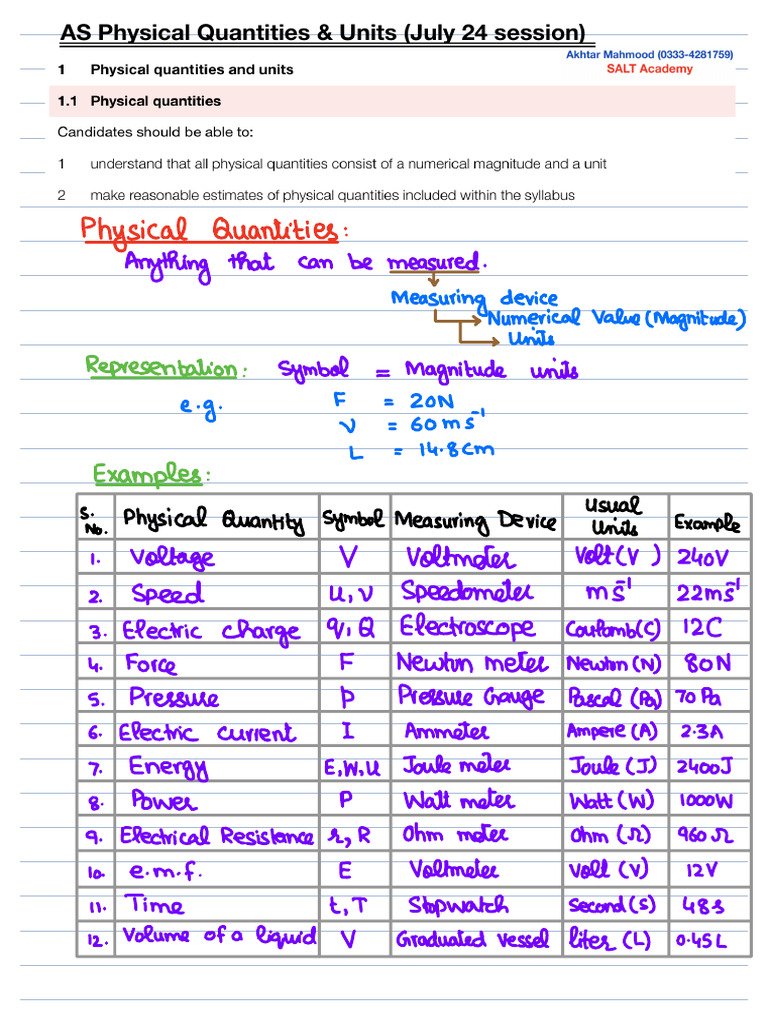 AS Physical Quantities & Units (July 24 session)
Akhtar Mahmood (0333-4281759)
SALT Academy
1 Physical quantities and units
1.1 Physical quantities
Candidates should be able to:
1 understand that all physical quantities consist of a numerical magnitude and a unit
2 make reasonable estimates of physical quantities included within the syllabus
Physical Quantities:
Anything that can be measured.
Measuring device
Numerical Value (Magnitude)
Units
Representation: Symbol = Magnitude units
e.g. F = 20N
v = 60ms⁻¹
L = 14.8cm
Examples:
S. No. Physical Quantity Symbol Measuring Device Usual Units Example
1. Voltage V Voltmeter Volt(V) 240V
2. Speed u, v Speedometer ms⁻¹ 22ms⁻¹
3. Electric charge q, Q Electroscope Coulomb(C) 12C
4. Force F Newton meter Newton (N) 80N
5. Pressure p Pressure Gauge Pascal (Pa) 70 Pa
6. Electric current I Ammeter Ampere (A) 2.3A
7. Energy E, W, U Joule meter Joule (J) 2400J
8. Power P Watt meter Watt (W) 1000W
9. Electrical Resistance r, R Ohm meter Ohm (Ω) 960Ω
10. e.m.f. E Voltmeter Volt (V) 12V
11. Time t, T Stopwatch Second (s) 48s
12. Volume of a liquid V Graduated vessel liter (L) 0.45L